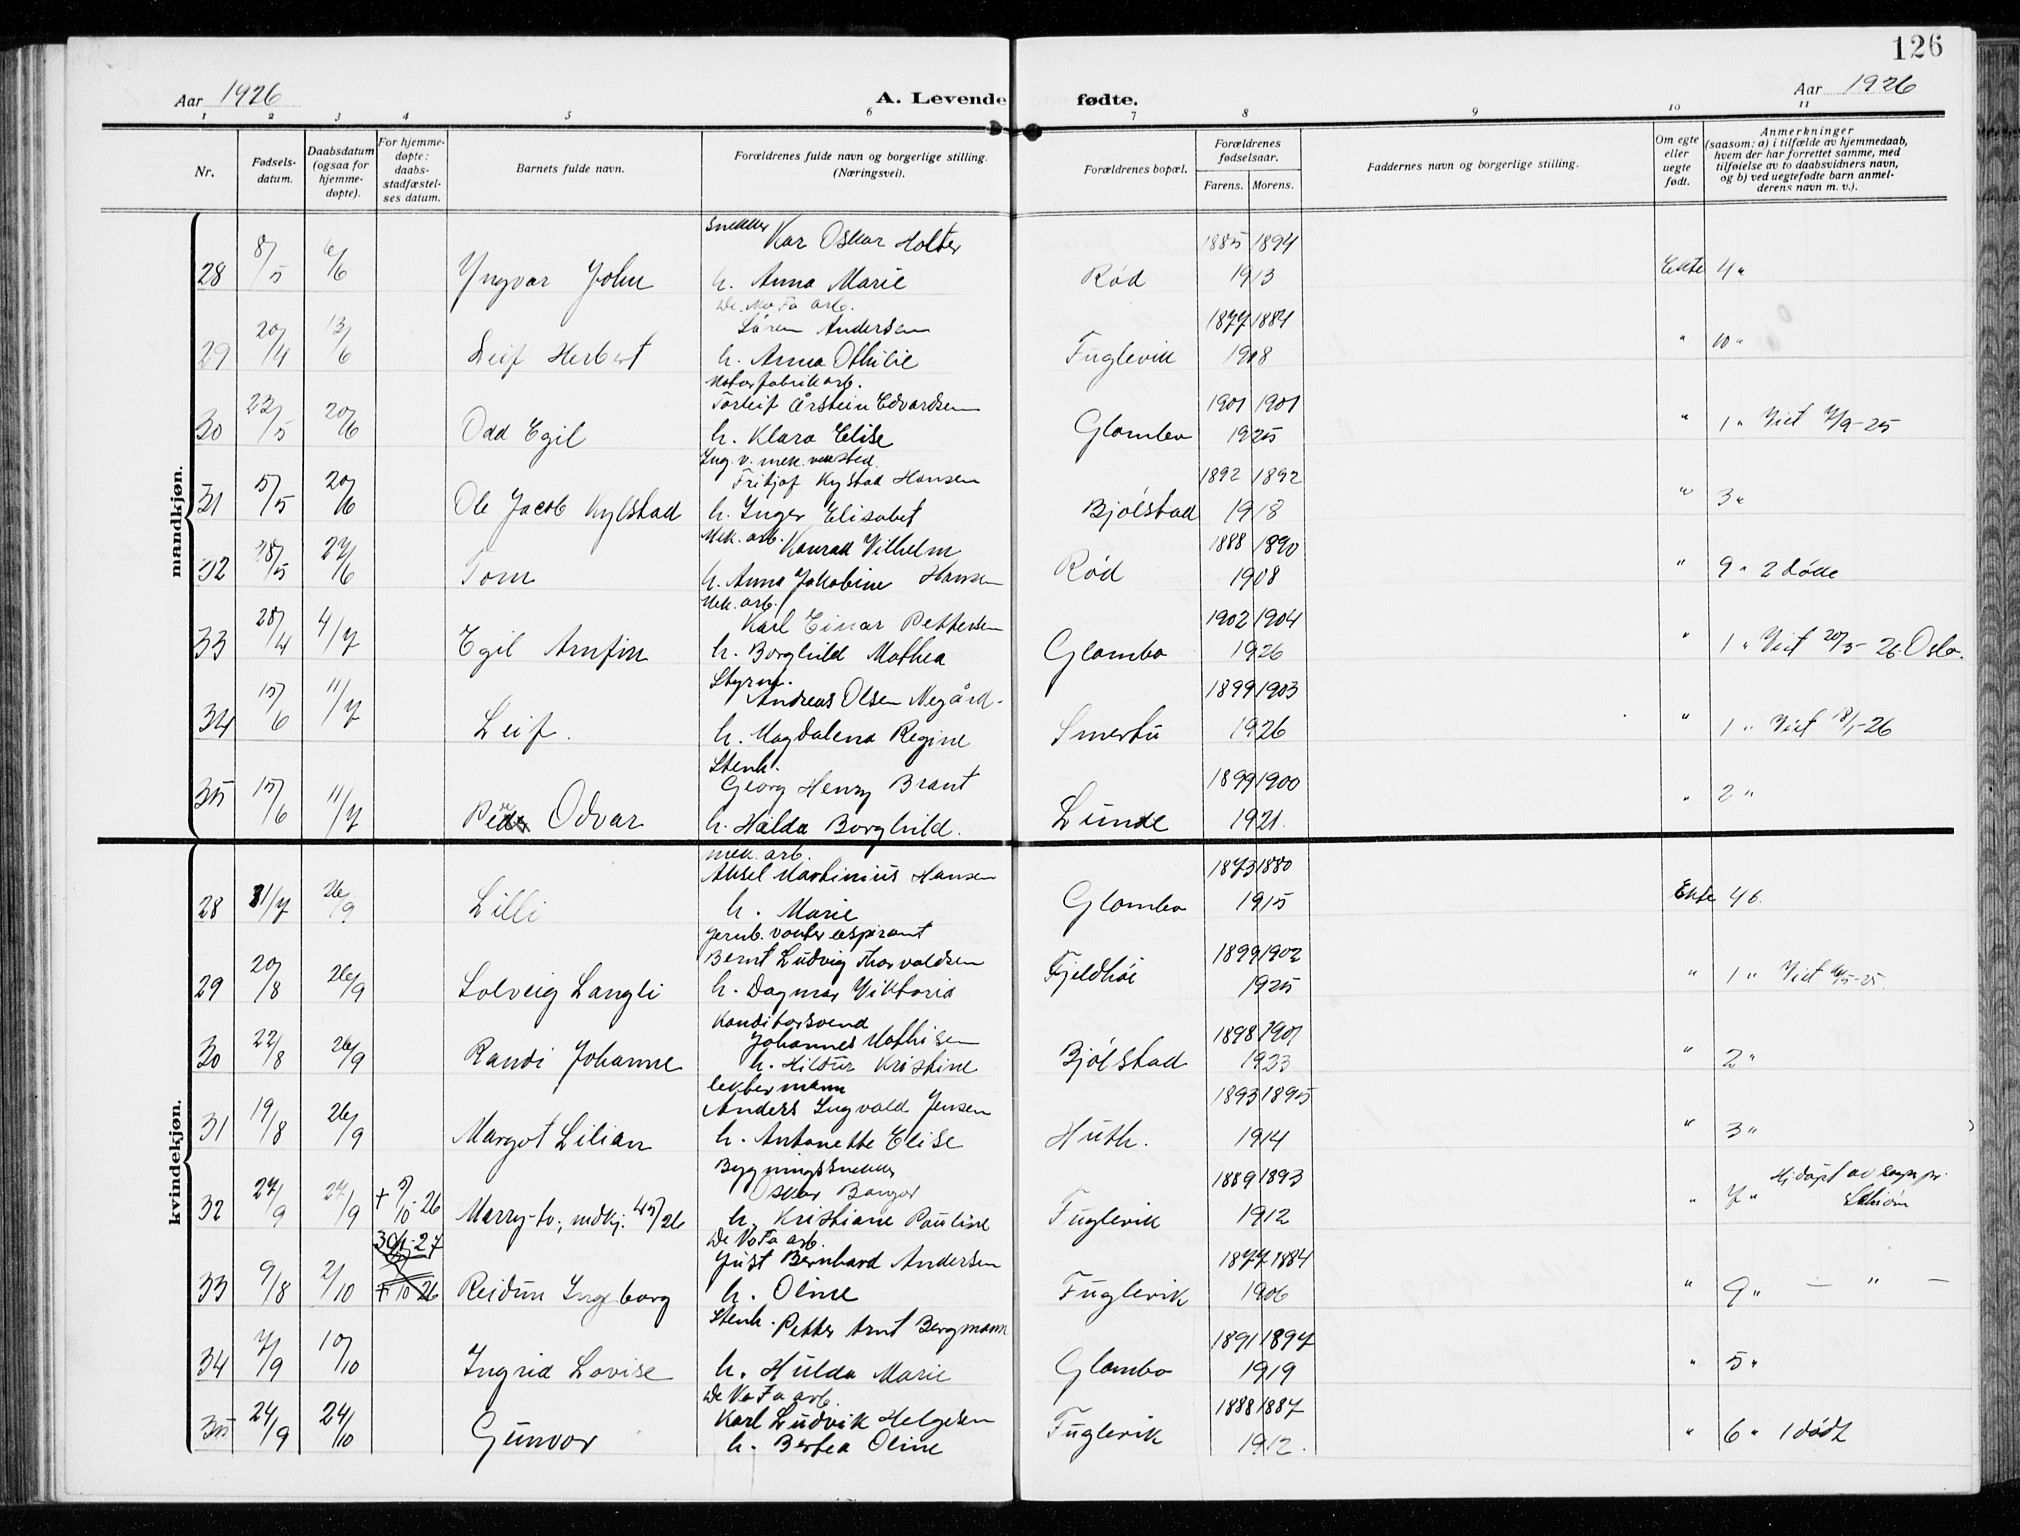 126
Aar 1926
A. Levende fødte.
Aar 1926
1 2 3 4 5 6 7 8 9 10 11
Nr.
Fødsels-
datum.
Daabsdatum
(ogsaa for
hjemme-
døpte).
For hjemme-
døpte:
daabs-
stadfæstel-
ses datum.
Barnets fulde navn.
Forældrenes fulde navn og borgerlige stilling.
(Næringsvei).
Forældrenes bopæl.
Forældrenes
fødselsaar.
Farens. Morens.
Faddernes navn og borgerlige stilling.
Om egte
eller
uegte
født.
Anmerkninger
(saasom: a) i tilfælde av hjemmedaab,
hvem der har forrettet samme, med
tilføielse av to daabsvidners navn,
og b) ved uegtefødte barn anmel-
derens navn m. v.).
mandkjøn.
Snekker Kar Oskar Holter 1885 1894
28 8/5 6/6 Yngvar John h. Anna Marie Rød 1913 Ekte 4 "
De No Fa arb.
Søren Andersen 1877 1884
29 20/4 13/6 Leif Herbert h. Anna Othilie Fuglevik 1908 " 10 "
Motorfabrik arb.
Torleif Årstein Edvardsen 1901 1901
30 22/5 20/6 Odd Egil h. Klara Elise Glombo 1925 " 1 " Viet /9-25
Ing. v. mek. verksted.
Fritjof Kystad Hansen 1892 1892
31 5/5 20/6 Ole Jacob Kylstad h. Inger Elisabet Bjølstad 1918 " 3 "
Mek. arb. Konrad Vilhelm 1888 1890
32 18/5 27/6 Tom h. Anna Jakobine Hansen Rød 1908 " 9 " 2 døde
Mek. arb.
Karl Einar Pettersen 1902 1904
33 28/4 4/7 Egil Arnfin h. Borghild Mathea Glombo 1926 " 1 " Viet 20/3-26. Oslo.
Styrm.
Andreas Olsen Negård 1899 1903
34 15/6 11/7 Leif. h. Magdalena Regine Smertu 1926 " 1 " Viet 18/1-26
Stenh.
Georg Henry Brant 1899 1900
35 15/6 11/7 Odvar h. Hilda Borghild. Lunde 1921. " 2 "
kvindekjøn.
mek. arb.
Aksel Martinius Hansen 1873 1880
28 31/7 26/9 Lilli h. Marie Glombo 1915 Ekte 4 b.
jernb. vokter aspirant
Bernt Ludvig Thorvaldsen 1899 1902
29 20/8 26/9 Solveig Langli h. Dagmar Viktoria Fjeldhøi 1925 " 1 " Viet /5-25.
Konditorsvend
Johannes Mathisen 1898 1901
30 22/8 26/9 Randi Johanne h. Hildur Kristine Bjølstad 1923 " 2 "
lektermann
Anders Ingvald Jensen 1893 1895
31 19/8 26/9 Margot Lilian h. Antonette Elise Huth. 1914 " 3 "
Bygningssnekker
Oskar Bangor 1889 1893
32 27/9 27/9 + 5/10-26 Marry-to, h. Kristiane Pauline Fuglevik 1912 " 7 " Hj døpt av sogn. pr. Schiøn
De No Fa arb.
Just Bernhard Andersen 1877 1884
33 9/8 2/10 Reidun Ingeborg h. Oline Fuglevik 1906 " 9 " — " —
Stenh. Petter Arnt Bergmann 1891 1897
34 7/9 10/10 Ingrid Lovise h. Hulda Marie Glombo 1919 " 5 "
De No Fa arb.
Karl Ludvik Helgesen 1888 1887
35 24/9 24/10 Gunvor h. Bertea Oline Fuglevik 1912. " 6 " 1 dødt